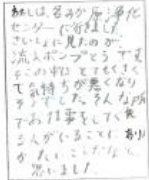 わたしは、名みが原浄化
センターに行きました。
さいしょに見たのが
流入ポンプとうです。
そこの中はとてもくさく
て気持ちが悪くなり
そうでした。そんな所
でお仕事をしてくれ
る人がいることに
ありがたいことだなと
思いました。